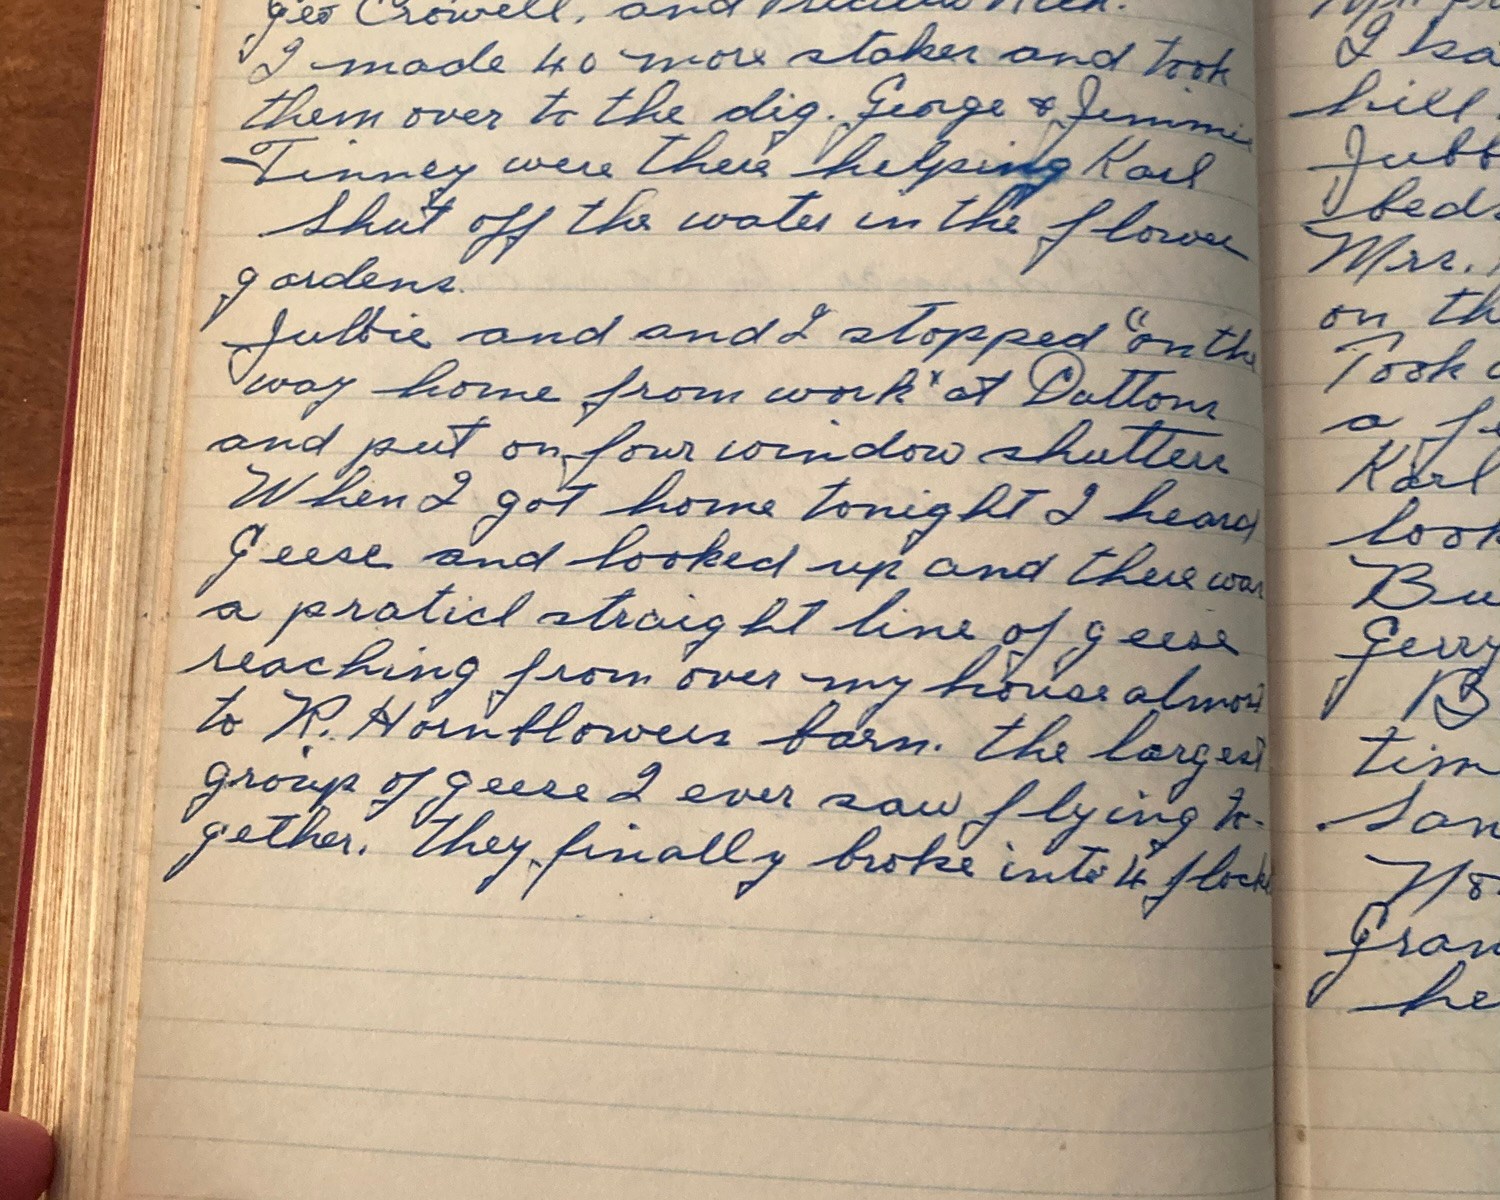 Geo Crowell, and
I made 40 more stakes and took
them over to the dig. George & Jimmie
Tinney were there helping Karl
Shut off the water in the flower
gardens.
Jubbie and and I stopped "on the
way home from work" at Duttons
and put on four window shutters
When I got home tonight I heard
Geese and looked up and there was
a praticl straight line of geese
reaching from over my house almost
to R. Hornblowers barn. the largest
group of geese I ever saw flying to-
gether. they finally broke into 4 flocks
I
hill
Jubb
beds
Mrs.
on th
Took
a fe
Karl
look
Bu
Gerry
B
tim
San
Gran
he